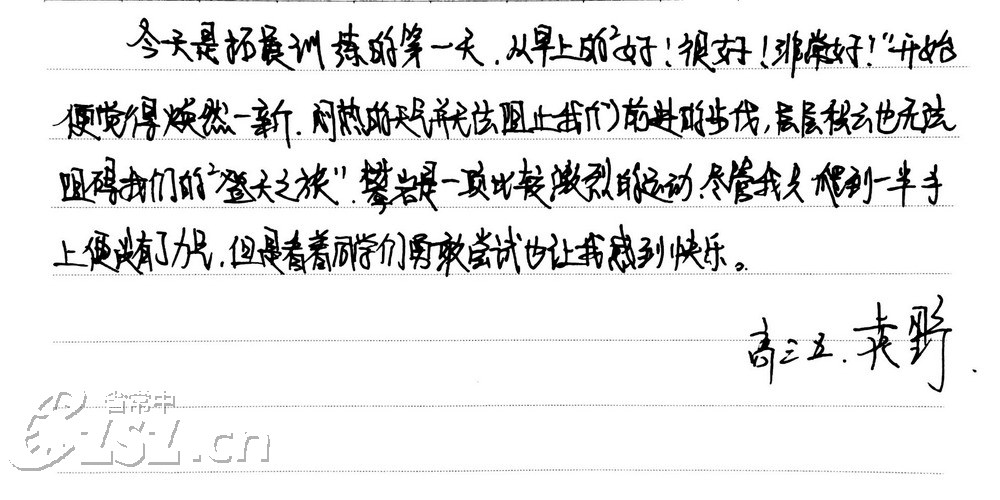 今天是拓展训练的第一天，从早上的“好！很好！非常好！”开始
便觉得焕然一新。闷热的天气并无法阻止我们前进的步伐，层层积云也无法
阻碍我们的“登天之旅”。攀岩是一项比较激烈的运动，尽管我只爬到一半手
上便没有了力气，但是看着同学们勇敢尝试也让我感到快乐。
高三五．袁野．
省常中
CZSZ.cn